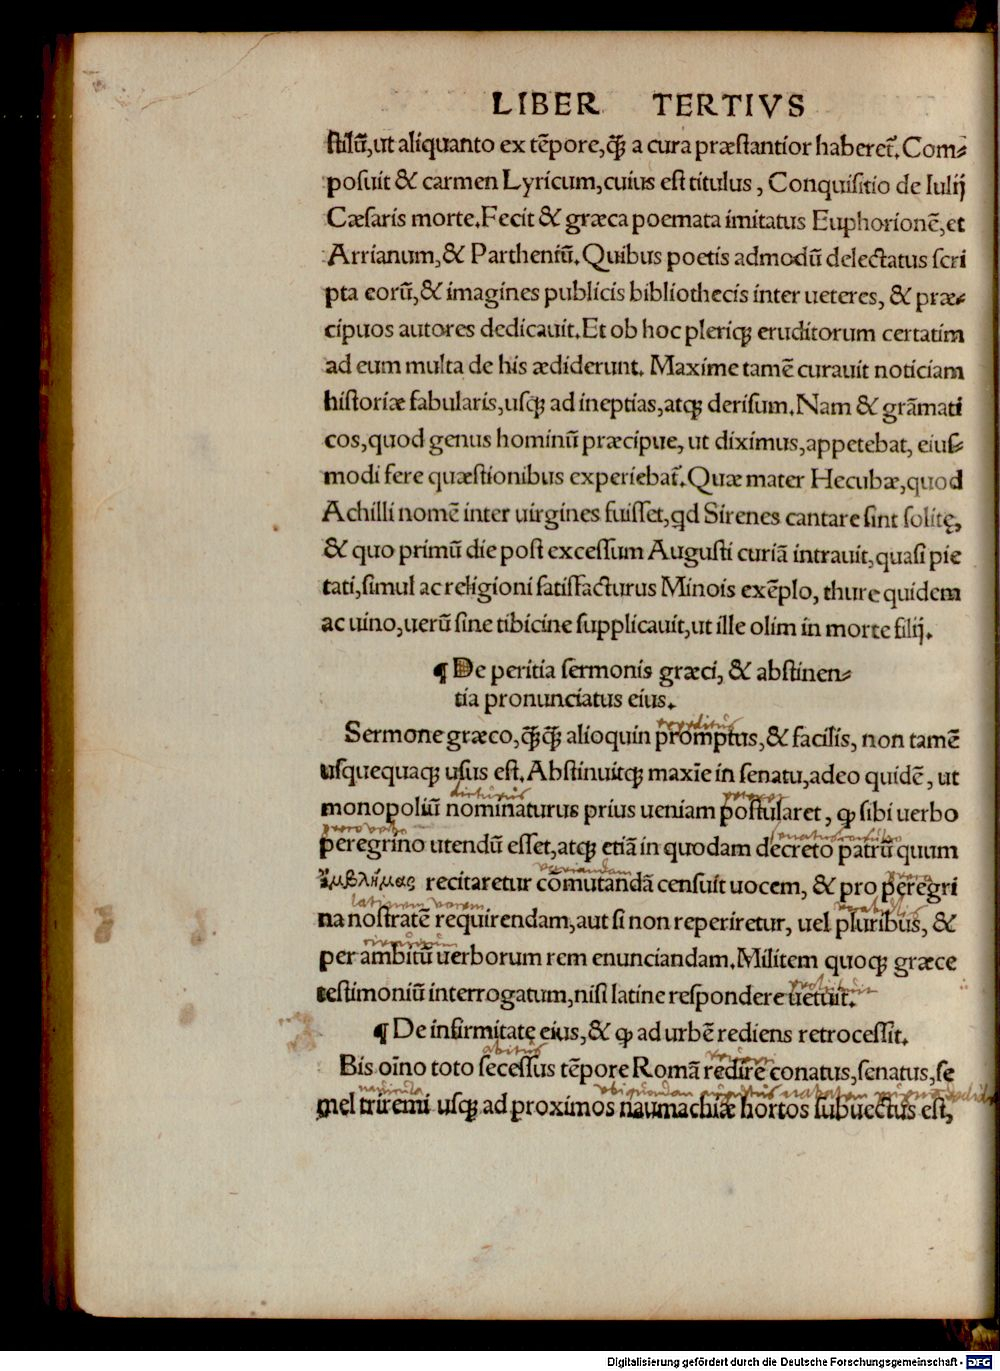 LIBER TERTIVS
stilũ, ut aliquanto ex tẽpore, q̃ꝫ a cura præstantior haberet̃. Com-
posuit & carmen Lyricum, cuius est titulus, Conquisitio de Iulij
Cæsaris morte. Fecit & græca poemata imitatus Euphorionẽ, et
Arrianum, & Partheniũ. Quibus poetis admodũ delectatus scri
pta eorũ, & imagines publicis bibliothecis inter ueteres, & præ-
cipuos autores dedicauit. Et ob hoc pleriqꝫ eruditorum certatim
ad eum multa de his ædiderunt. Maxime tamẽ curauit noticiam
historiæ fabularis, usqꝫ ad ineptias, atqꝫ derisum. Nam & grãmati
cos, quod genus hominũ præcipue, ut diximus, appetebat, eius-
modi fere quæstionibus experiebat̃. Quæ mater Hecubæ, quod
Achilli nomẽ inter uirgines fuisset, qd Sirenes cantare sint solitę,
& quo primũ die post excessum Augusti curiã intrauit, quasi pie
tati, simul ac religioni satisfacturus Minois exẽplo, thure quidem
ac uino, uerũ sine tibicine supplicauit, ut ille olim in morte filij.
¶ De peritia sermonis græci, & abstinen-
tia pronunciatus eius.
Sermone græco, q̃ꝫq̃ꝫ alioquin promptus, & facilis, non tamẽ
usquequaqꝫ usus est. Abstinuitqꝫ maxĩe in senatu, adeo quidẽ, ut
dicturus
monopoliũ nominaturus prius ueniam postularet, ꝙ sibi uerbo
peregrino utendũ esset, atqꝫ etiã in quodam decreto patrũ quum
ἔμβλημας recitaretur cõmutandã censuit uocem, & pro peregri
latinam vocem
na nostratẽ requirendam, aut si non reperiretur, uel pluribus, &
per ambitũ uerborum rem enunciandam. Militem quoqꝫ græce
prohibuit
testimoniũ interrogatum, nisi latine respondere uetuit.
¶ De infirmitate eius, & ꝙ ad urbẽ rediens retrocessit.
abitus
Bis oĩno toto secessus tẽpore Romã redire conatus, senatus, se
mel triremi usqꝫ ad proximos naumachiæ hortos subuectus est,
Digitalisierung gefördert durch die Deutsche Forschungsgemeinschaft - DFG